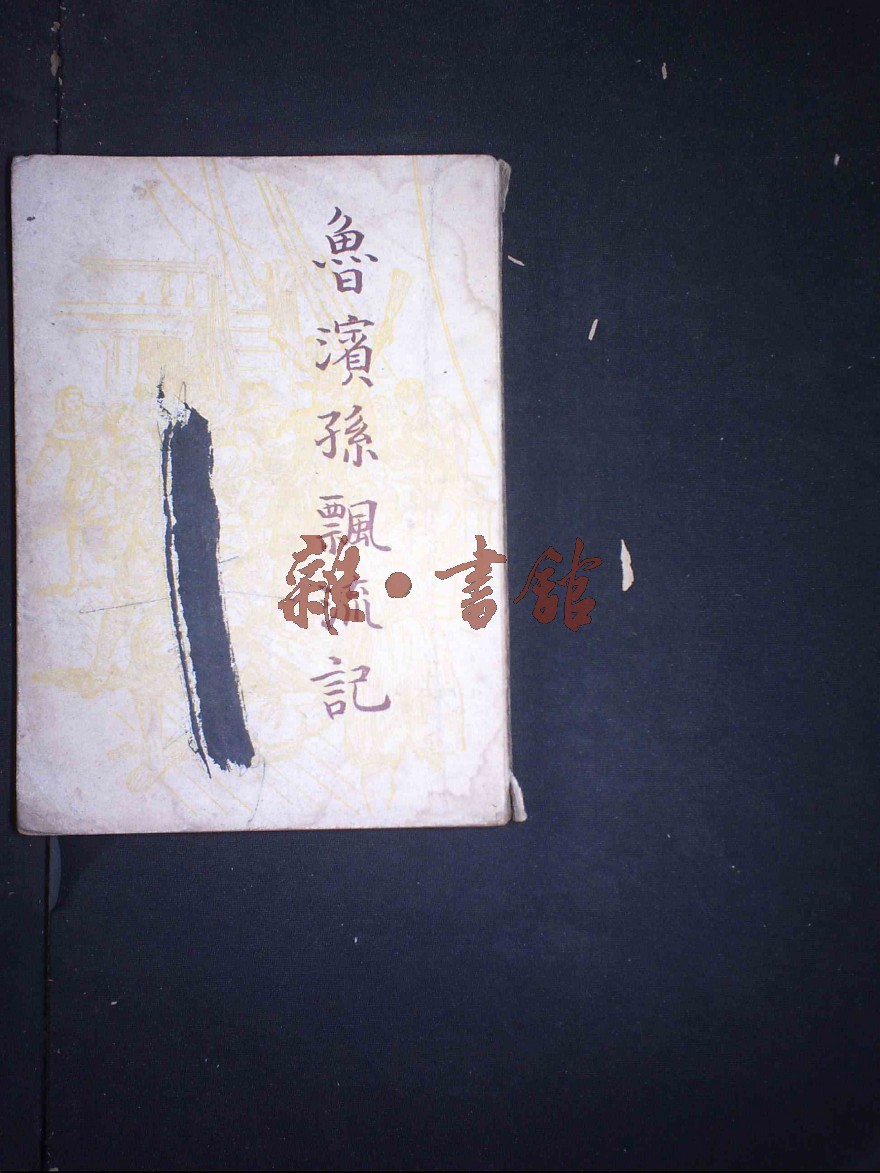 魯濱孫飄流記
雜·書館